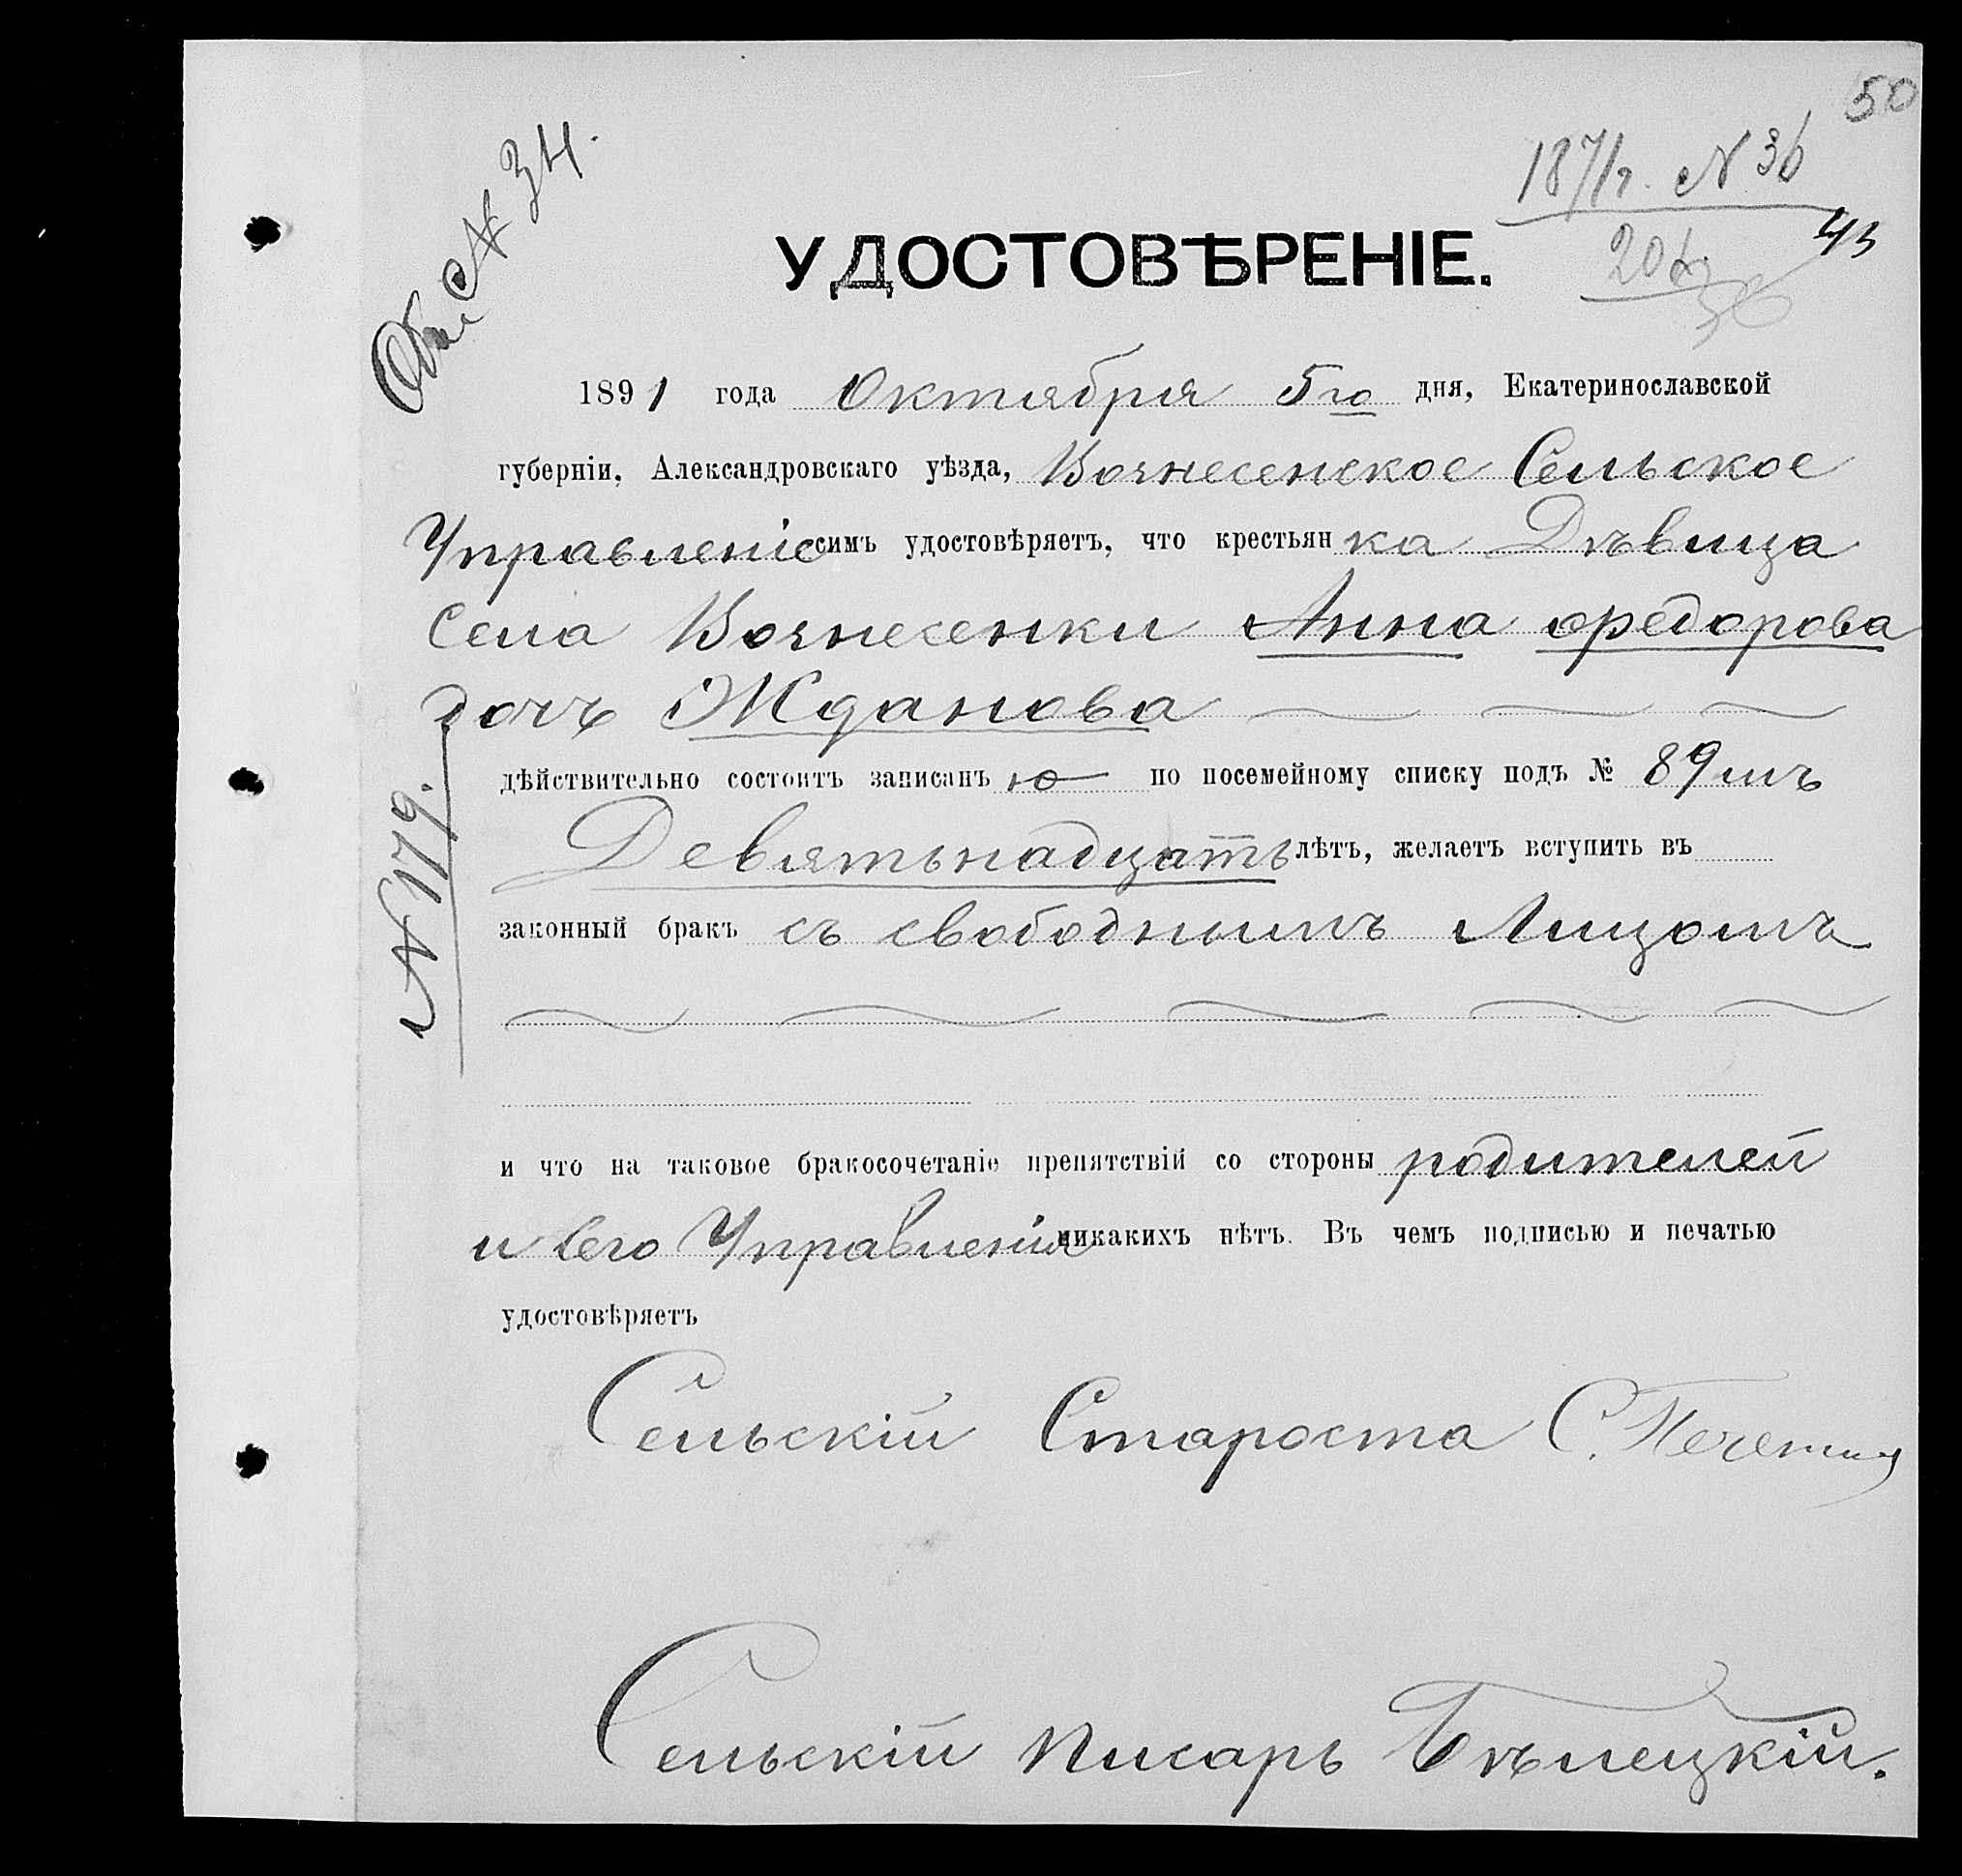 50
1871г. № 36
Обы. № 34.
43
УДОСТОВѢРЕНІЕ.
20 л.
1891 года Октября 5го дня, Екатеринославской
губерніи, Александровскаго уѣзда, Вознесенское Сельское
Управленіе симъ удостовѣряетъ, что крестьянка Дѣвица
села Вознесенки Анна Федорова
дочь Жданова
дѣйствительно состоитъ записанъю по посемейному списку подъ № 89мъ
Девятьнадцать лѣтъ, желаетъ вступить въ
законный бракъ съ свободнымъ Лицомъ
№ 179.
и что на таковое бракосочетаніе препятствій со стороны родителей
и сего Управленія никакихъ нѣтъ. Въ чемъ подписью и печатью
удостовѣряетъ
Сельскій Староста С.
Сельскій Писарь Бѣлецкій.